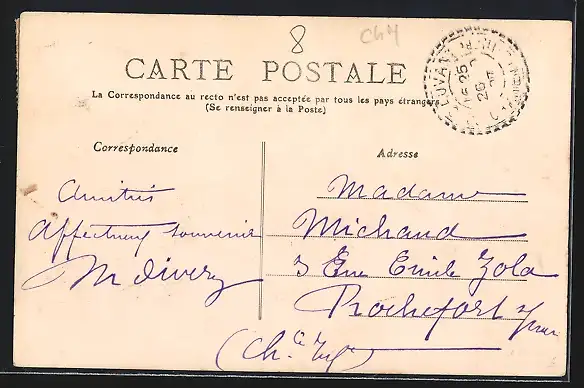 8
CARTE POSTALE
La Correspondance au recto n'est pas acceptée par tous les pays étrangers
(Se renseigner à la Poste)
Correspondance
Adresse
Amitiés
Affectueux souvenir
Madame
Michaud
3 Rue Emile Zola
Rochefort s/mer
(Ch. Inf.)